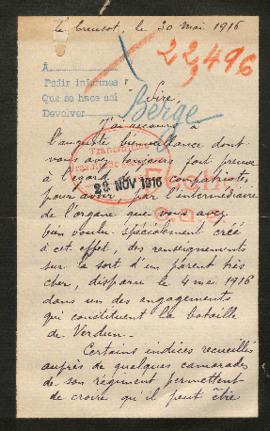 Le Creusot, le 30 mai 1916
22,496
A
Pedir informes
Que se hace asi
Devolver
Berge
Sire,
J'ai recours à
l'auguste bienveillance dont
vous avez toujours fait preuve
à l'égard de compatriotes,
pour avoir par l'intermédiaire
de l'organe que vous avez
bien voulu spécialement créé
à cet effet, des renseignements
sur le sort d'un parent très
cher, disparu le 4 mai 1916
dans un des engagements
qui constituent la bataille
de Verdun.
Certains indices recueillis
auprès de quelques camarades
de son régiment permettent
de croire qu'il peut être
29 NOV 1916